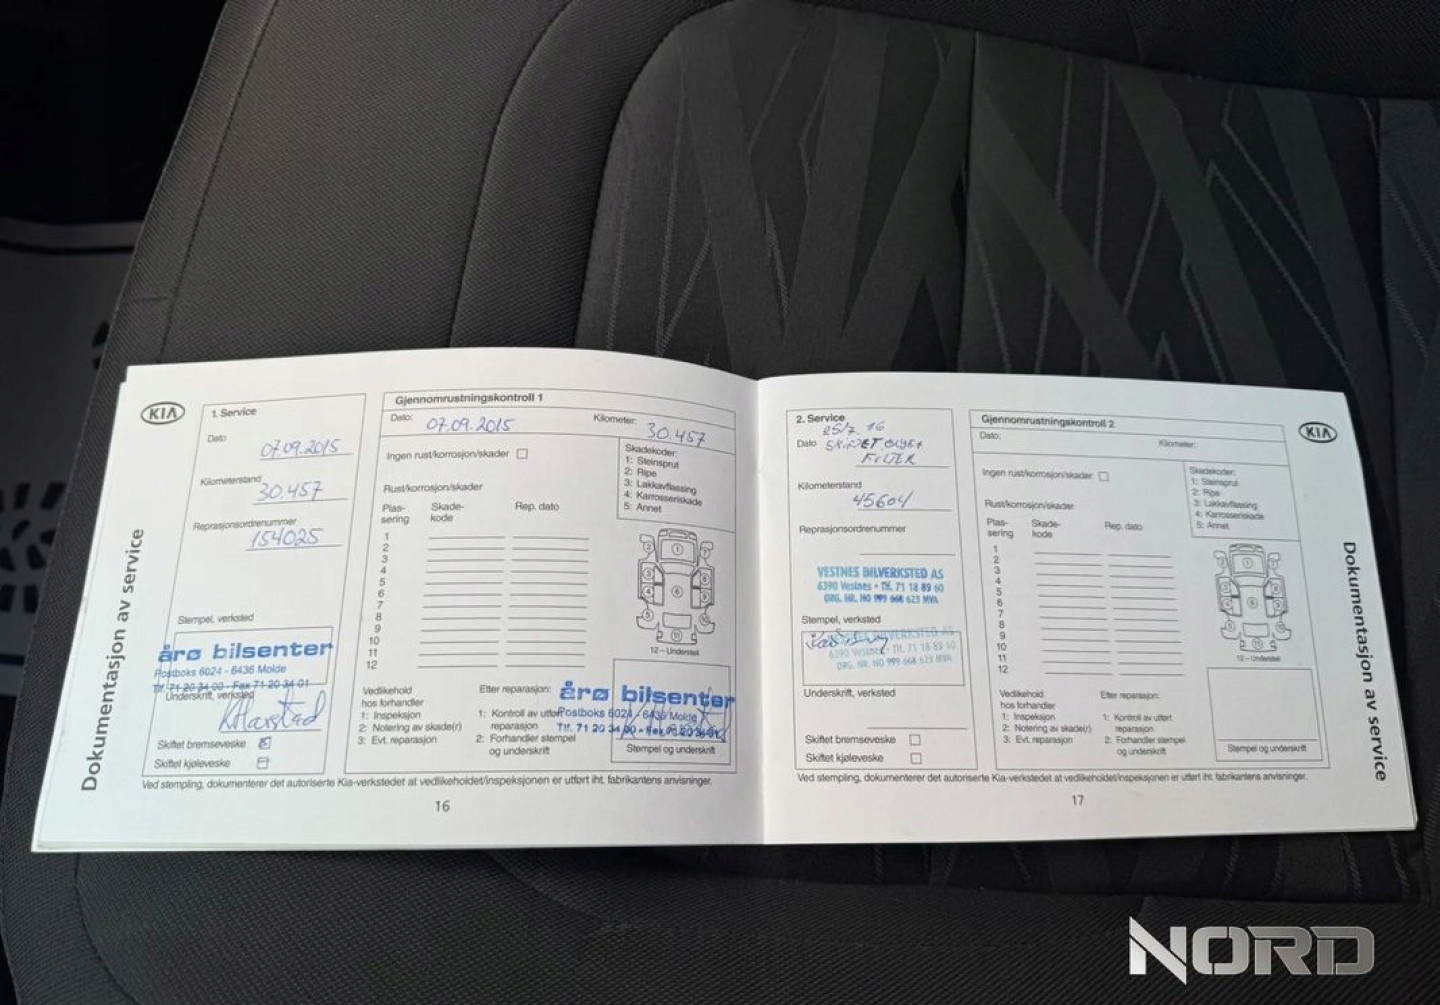 KIA
Dokumentasjon av service
1. Service
Dato
07.09.2015
Kilometerstand
30.457
Reprasjonsordrenummer
154025
Stempel, verksted
årø bilsenter
Postboks 6024 - 6436 Molde
Tlf. 71 20 34 00 - Fax 71 20 34 01
Underskrift, verksted
Skiftet bremsevæske
Skiftet kjølevæske
Gjennomrustningskontroll 1
Dato: 07.09.2015 Kilometer: 30.457
Ingen rust/korrosjon/skader
Rust/korrosjon/skader
Plas-
sering
Skade-
kode
Rep. dato
1
2
3
4
5
6
7
8
9
10
11
12
Skadekoder:
1: Steinsprut
2: Ripe
3: Lakkavflassing
4: Karrosseriskade
5: Annet
12 - Understell
Vedlikehold
hos forhandler
1: Inspeksjon
2: Notering av skade(r)
3: Evt. reparasjon
Etter reparasjon:
1: Kontroll av utført
reparasjon
2: Forhandler stempel
og underskrift
årø bilsenter
Postboks 6024 - 6436 Molde
Tlf. 71 20 34 00 - Fax 71 20 34 01
Stempel og underskrift
Ved stempling, dokumenterer det autoriserte Kia-verkstedet at vedlikeholdet/inspeksjonen er utført iht. fabrikantens anvisninger.
16
2. Service
25/7. 16
Dato SKIFTET OLJE+
FILTER
Kilometerstand
45604
Reprasjonsordrenummer
VESTNES BILVERKSTED AS
6390 Vestnes - Tlf. 71 18 89 60
ORG. NR. NO 999 668 623 MVA
Stempel, verksted
VESTNES BILVERKSTED AS
6390 Vestnes - Tlf. 71 18 89 60
ORG. NR. NO 999 668 623 MVA
Underskrift, verksted
Skiftet bremsevæske
Skiftet kjølevæske
Gjennomrustningskontroll 2
Dato: Kilometer:
Ingen rust/korrosjon/skader
Rust/korrosjon/skader
Plas-
sering
Skade-
kode
Rep. dato
1
2
3
4
5
6
7
8
9
10
11
12
Skadekoder:
1: Steinsprut
2: Ripe
3: Lakkavflassing
4: Karrosseriskade
5: Annet
12 - Understell
Vedlikehold
hos forhandler
1: Inspeksjon
2: Notering av skade(r)
3: Evt. reparasjon
Etter reparasjon:
1: Kontroll av utført
reparasjon
2: Forhandler stempel
og underskrift
Stempel og underskrift
Ved stempling, dokumenterer det autoriserte Kia-verkstedet at vedlikeholdet/inspeksjonen er utført iht. fabrikantens anvisninger.
17
KIA
Dokumentasjon av service
NORD